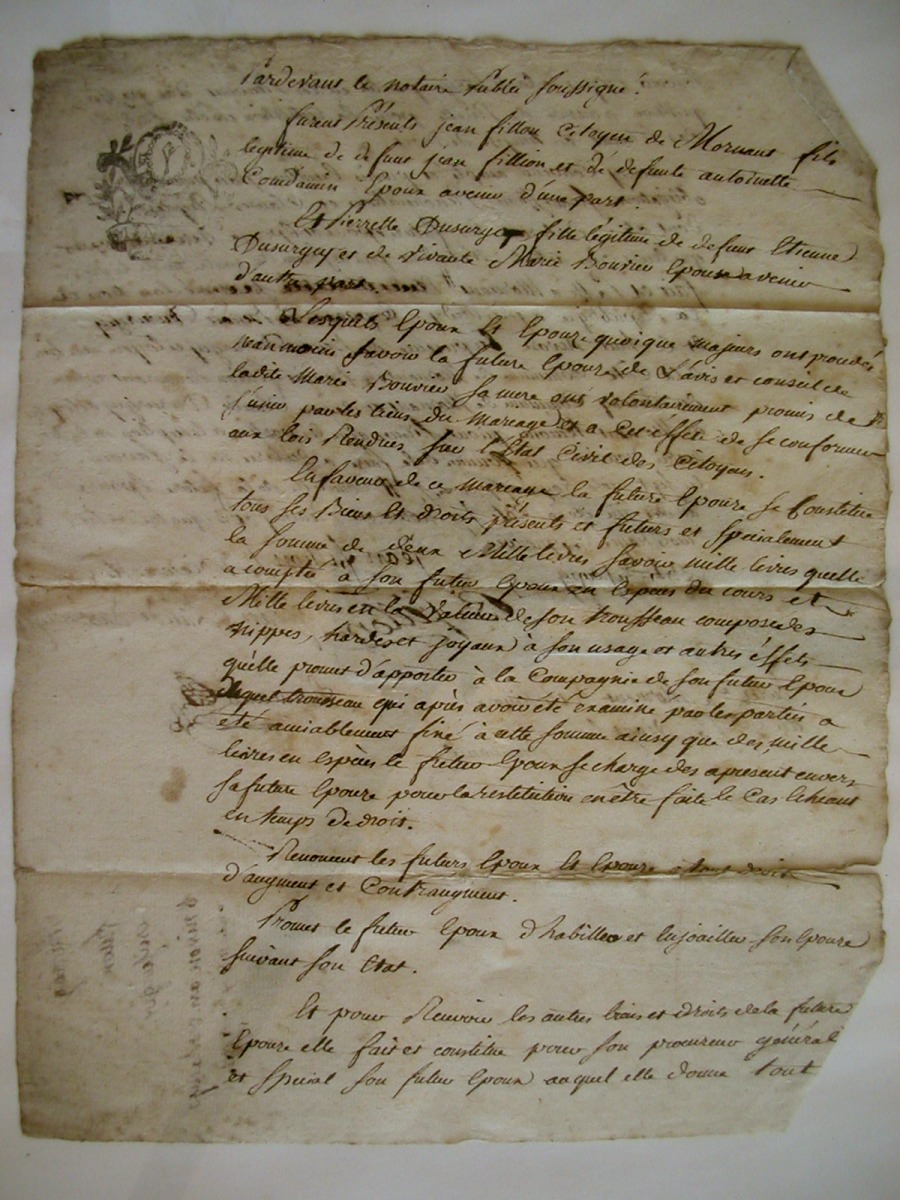 Pardevant le notaire Public soussigné
furent Présents jean fillion Citoyen de Mornant fils
legitime de defunt jean fillion et de defunte antoinette
Condamin Epoux avenir d'une part
Et Pierrette Dusurgey fille légitime de defunt Etienne
Dusurgey et de vivante Marie Bouvier Epouse avenir
d'autre part
Lesquels Epoux Et Epouze quoique majeurs ont procédés
néanmoins savoir la future Epouze de L'avis et conseil de
ladite Marie Bouvier sa mere ont volontairement promis de
s'unir par les liens du Mariage et a cet effet de se conformer
aux lois Rendües sur l'Etat Civil des Citoyens.
En faveur de ce mariage la future Epouze se Constitue
tous ses Biens Et droits présents et futurs et spécialement
la somme de deux Mille livres savoir mille livres quelle
a comptée à son futur Epoux en Espèces du cours et
Mille livres en la valeur de son trousseau composé de
nippes, hardes et joyaux à son usage et autres éffets
quélle promet d'apporter à la Compagnie de son futur Epoux
lequel trousseau qui après avoir été examiné par les parties a
été amiablement fixé à cette somme ainsy que des mille
livres en espèces le futur Epoux se charge des apresent envers
sa future Epouze pour la restitution en être faite le Cas échéant
en temps de droit.
Renoncent les futurs Epoux Et Epouze à tout droit
d'augment et Contraugment.
Promet le futur Epoux d'habiller et Enjoailler son Epouze
suivant son Etat.
Et pour Recevoir les autres biens et droits de la future
Epouze elle fait et constitue pour son procureur général
et spécial son futur Epoux auquel elle donne tout